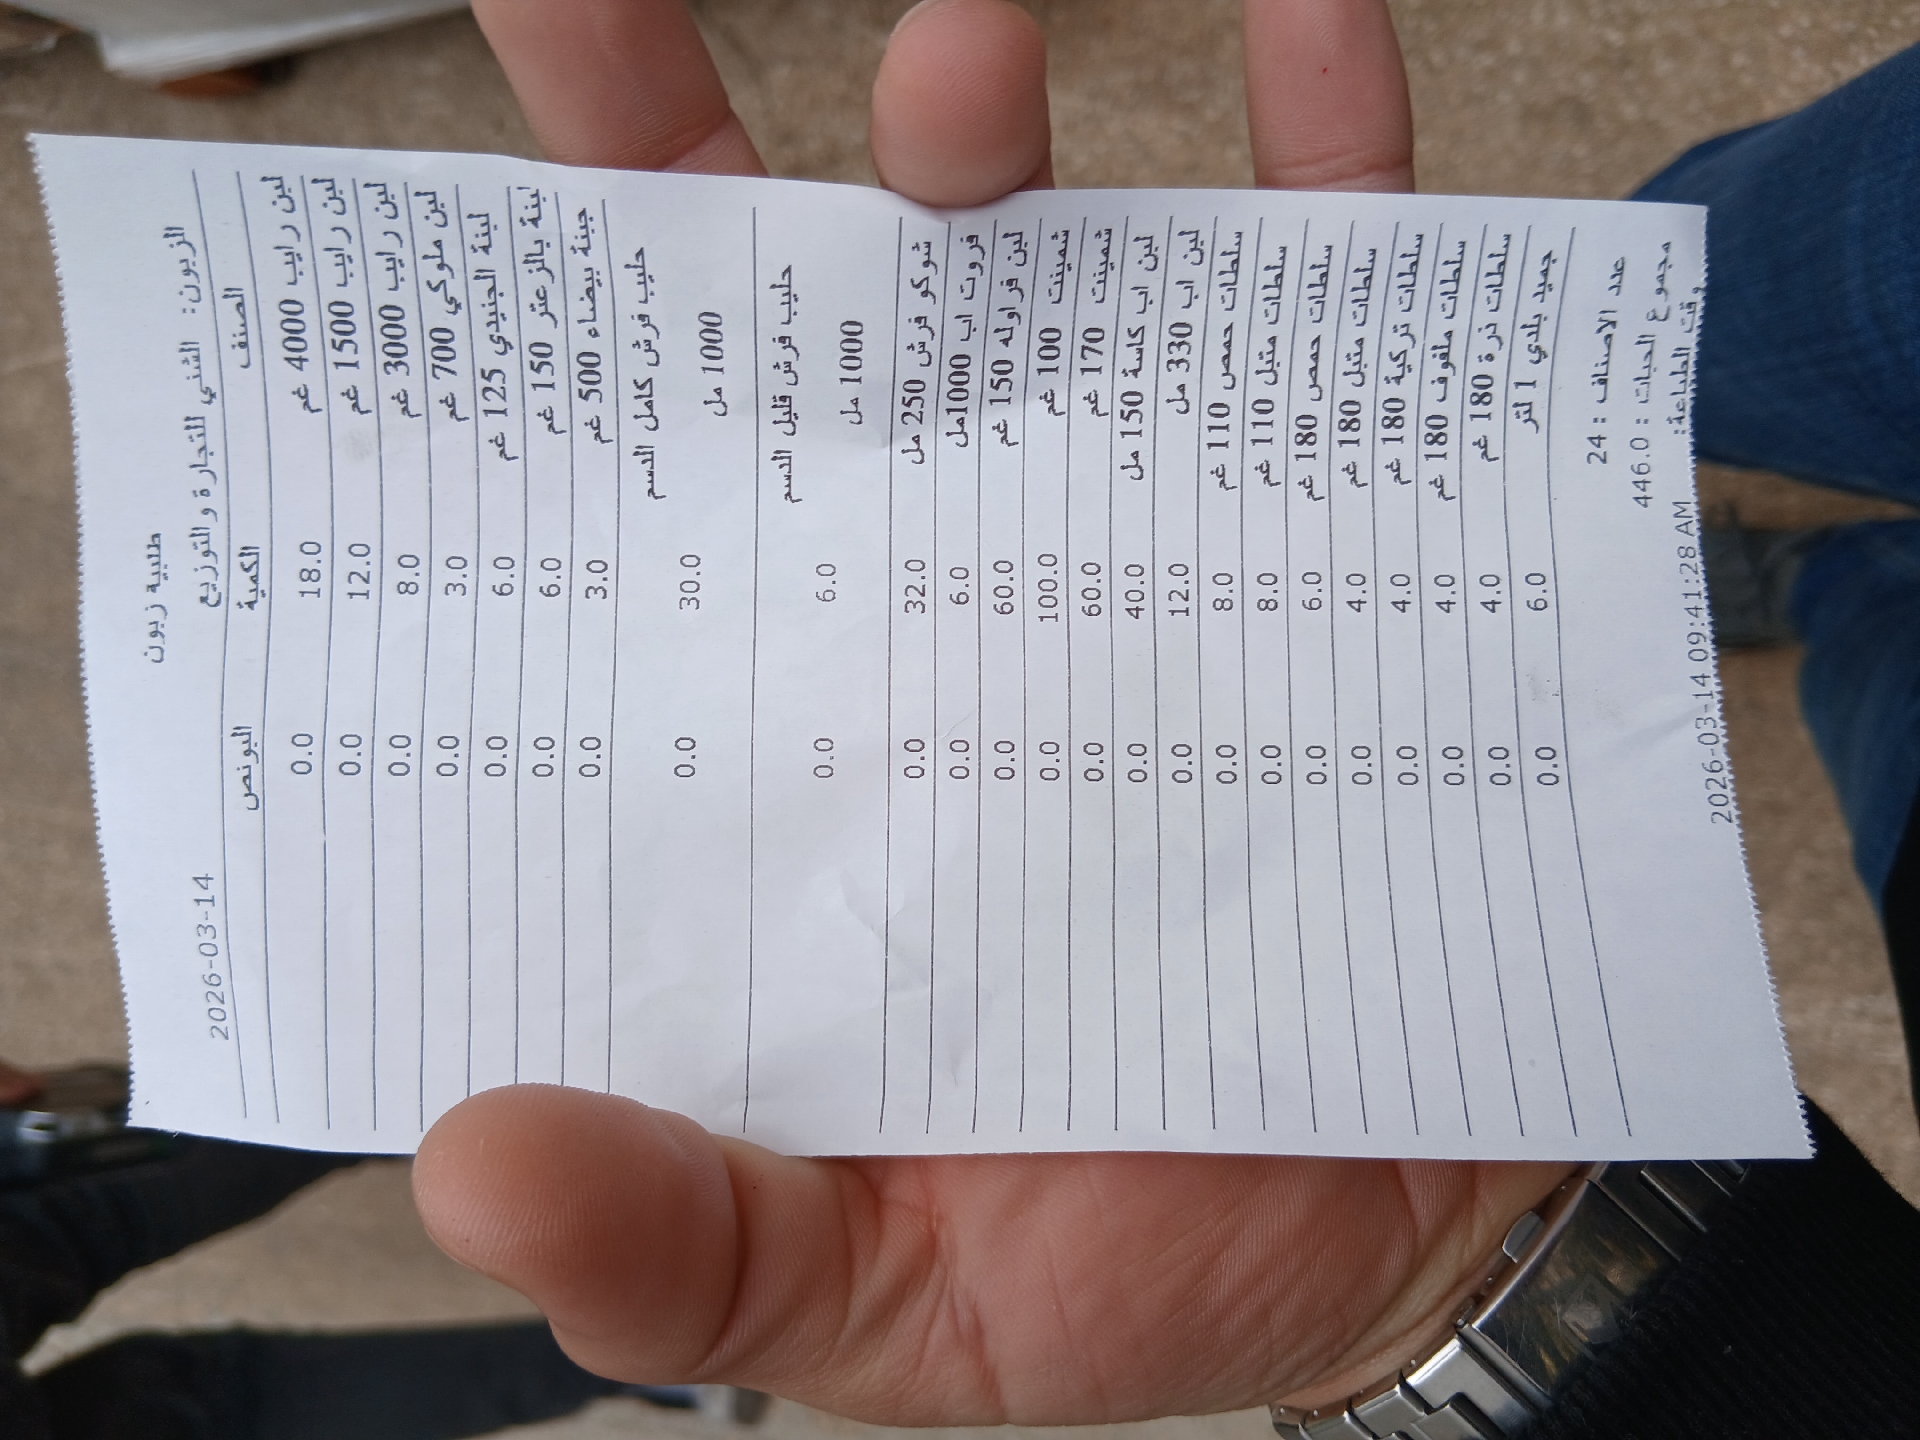 طلبية زبون
الزبون: الشني للتجارة و التوزيع 2026-03-14
الصنف الكمية البونص
لبن رايب 4000 غم 18.0 0.0
لبن رايب 1500 غم 12.0 0.0
لبن رايب 3000 غم 8.0 0.0
لبن ملوكي 700 غم 3.0 0.0
لبنة الجنيدي 125 غم 6.0 0.0
لبنة بالزعتر 150 غم 6.0 0.0
جبنة بيضاء 500 غم 3.0 0.0
حليب فرش كامل الدسم
1000 مل 30.0 0.0
حليب فرش قليل الدسم
1000 مل 6.0 0.0
شوكو فرش 250 مل 32.0 0.0
فروت اب 1000مل 6.0 0.0
لبن فراوله 150 غم 60.0 0.0
شمينت 100 غم 100.0 0.0
شمينت 170 غم 60.0 0.0
لبن اب كاسة 150 مل 40.0 0.0
لبن اب 330 مل 12.0 0.0
سلطات حمص 110 غم 8.0 0.0
سلطات متبل 110 غم 8.0 0.0
سلطات حمص 180 غم 6.0 0.0
سلطات متبل 180 غم 4.0 0.0
سلطات تركية 180 غم 4.0 0.0
سلطات ملفوف 180 غم 4.0 0.0
سلطات ذرة 180 غم 4.0 0.0
جميد بلدي 1 لتر 6.0 0.0
عدد الاصناف : 24
مجموع الحبات : 446.0
وقت الطباعة: 2026-03-14 09:41:28 AM